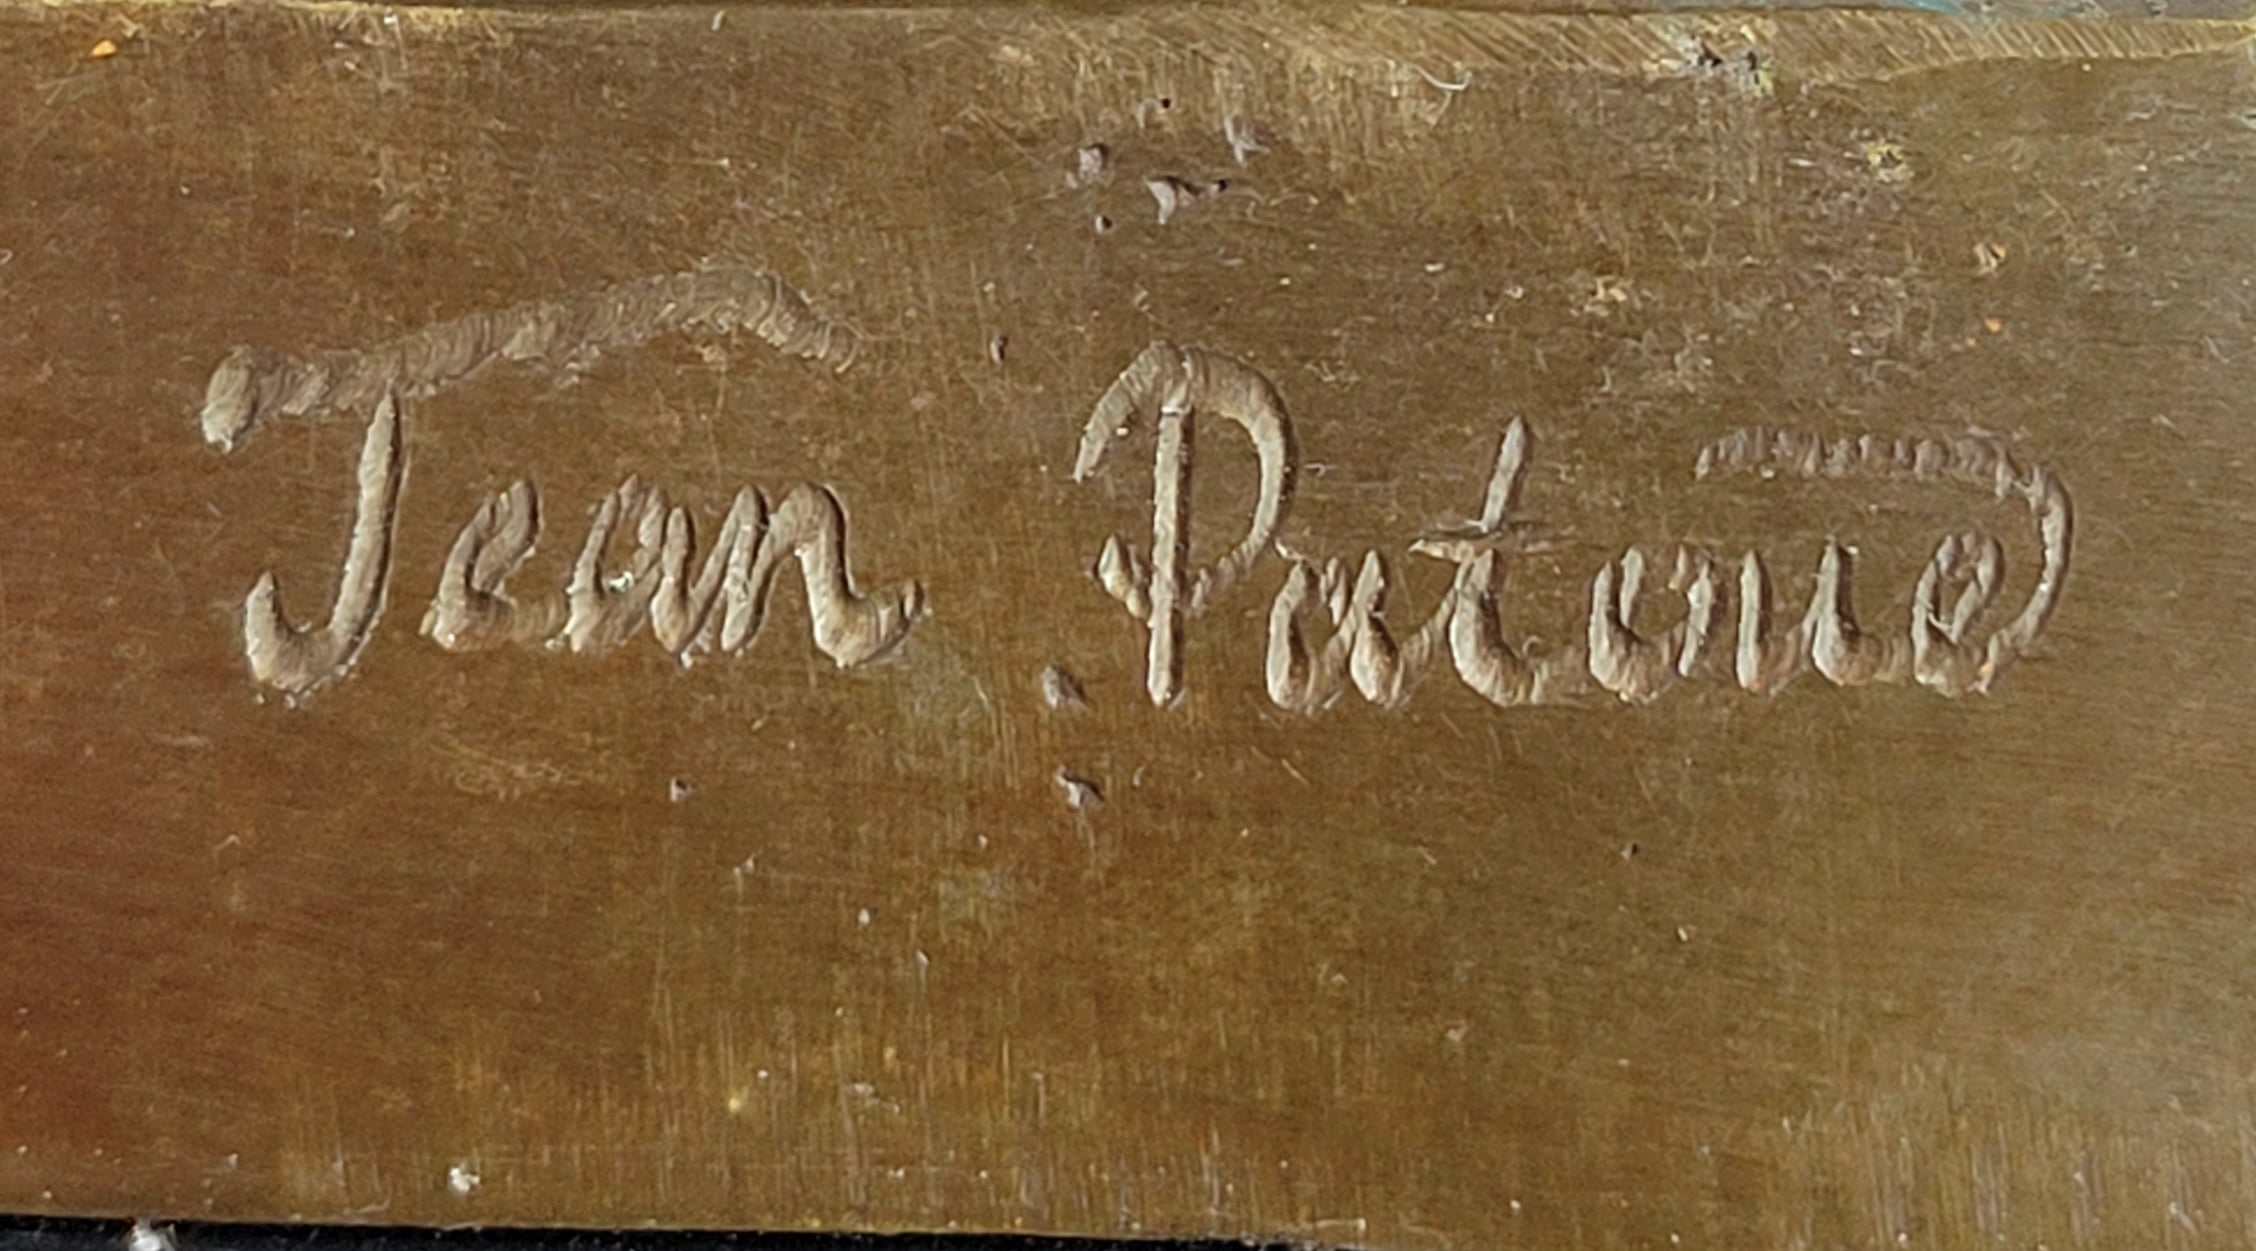 Jean Patoue